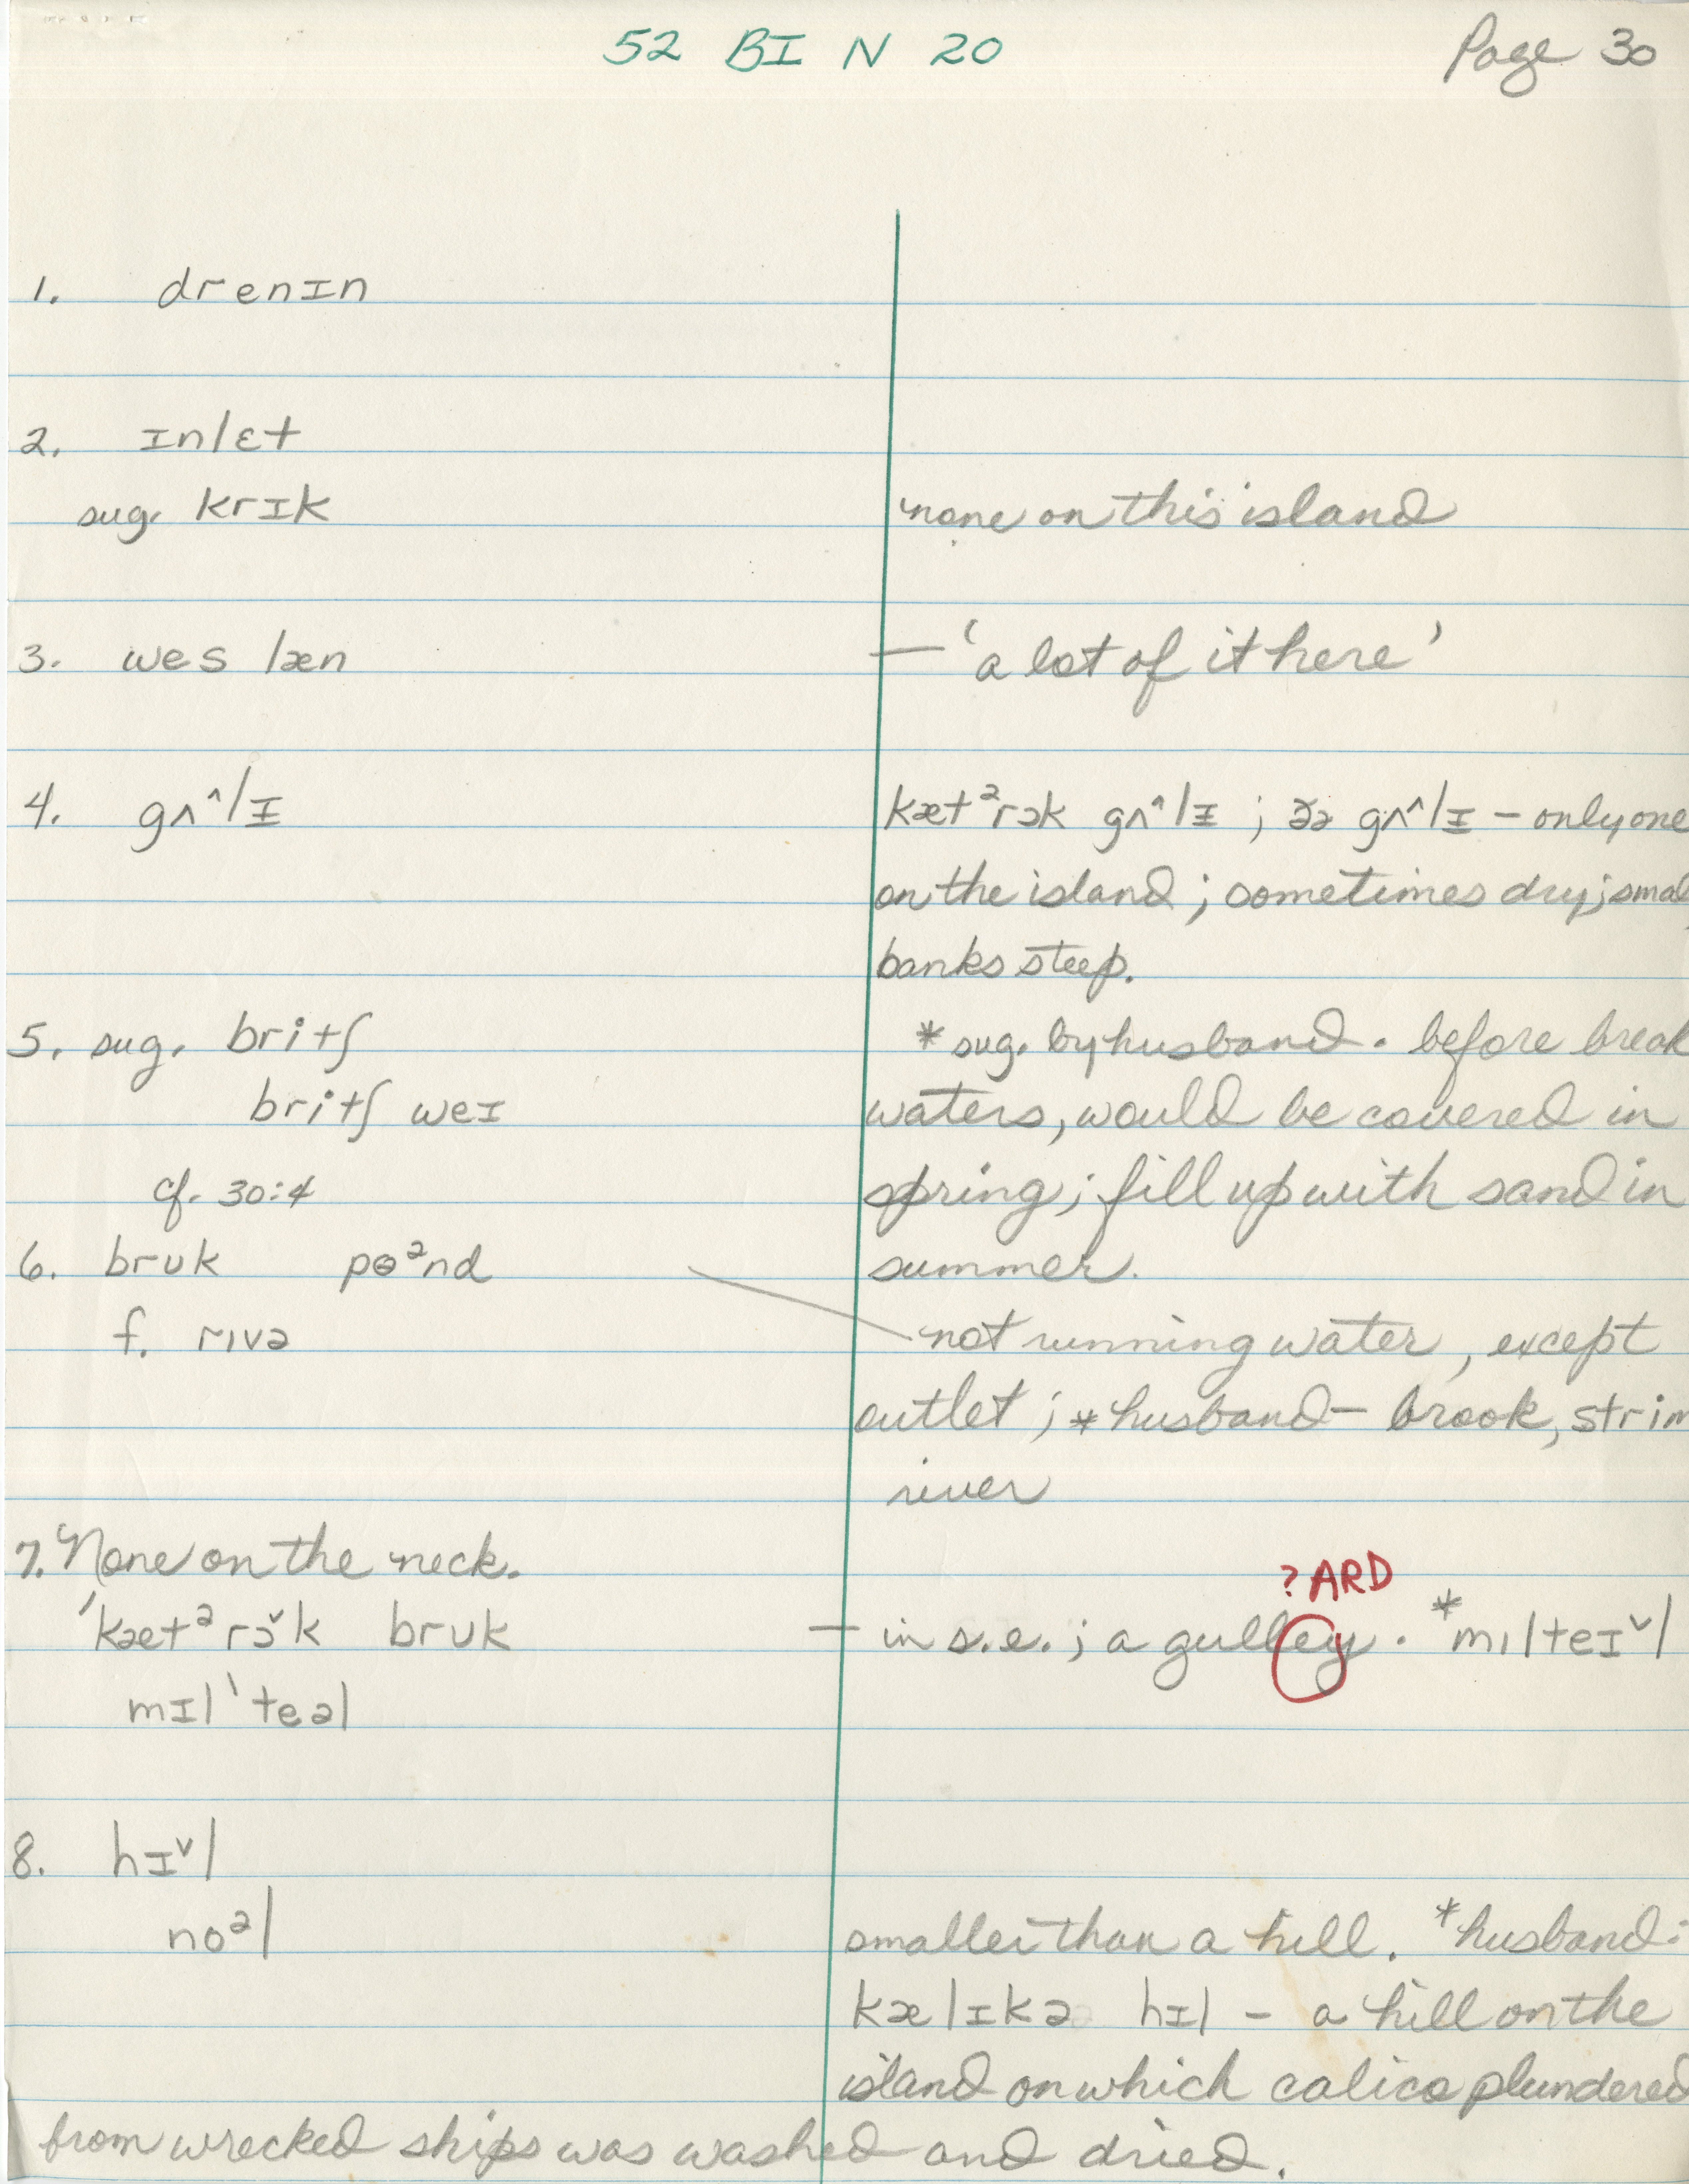 52 BI N 20 Page 30
1. drenɪn
2. ɪnlɛt
sug. krɪk none on this island
3. wes læn — 'a lot of it here'
4. gʌ^lɪ kætᵊrɔk gʌ^lɪ ; ðə gʌ^lɪ – only one
on the island ; sometimes dry; smal
banks steep.
5. sug. britʃ * sug. by husband. before break
britʃ weɪ waters, would be covered in
cf. 30:4 spring; fill up with sand in
6. brʊk pɵᵊnd summer.
f. rɪvə not running water, except
outlet ; * husband – brook, strim
river
7. None on the neck.
? ARD
'kætᵊrɔˇk brʊk — in s.e. ; a gulley. *mɪlteɪˇl
mɪl'teəl
8. hɪˇl
noᵊl smaller than a hill. *husband:
kælɪkə hɪl – a hill on the
island on which calico plundered
from wrecked ships was washed and dried.